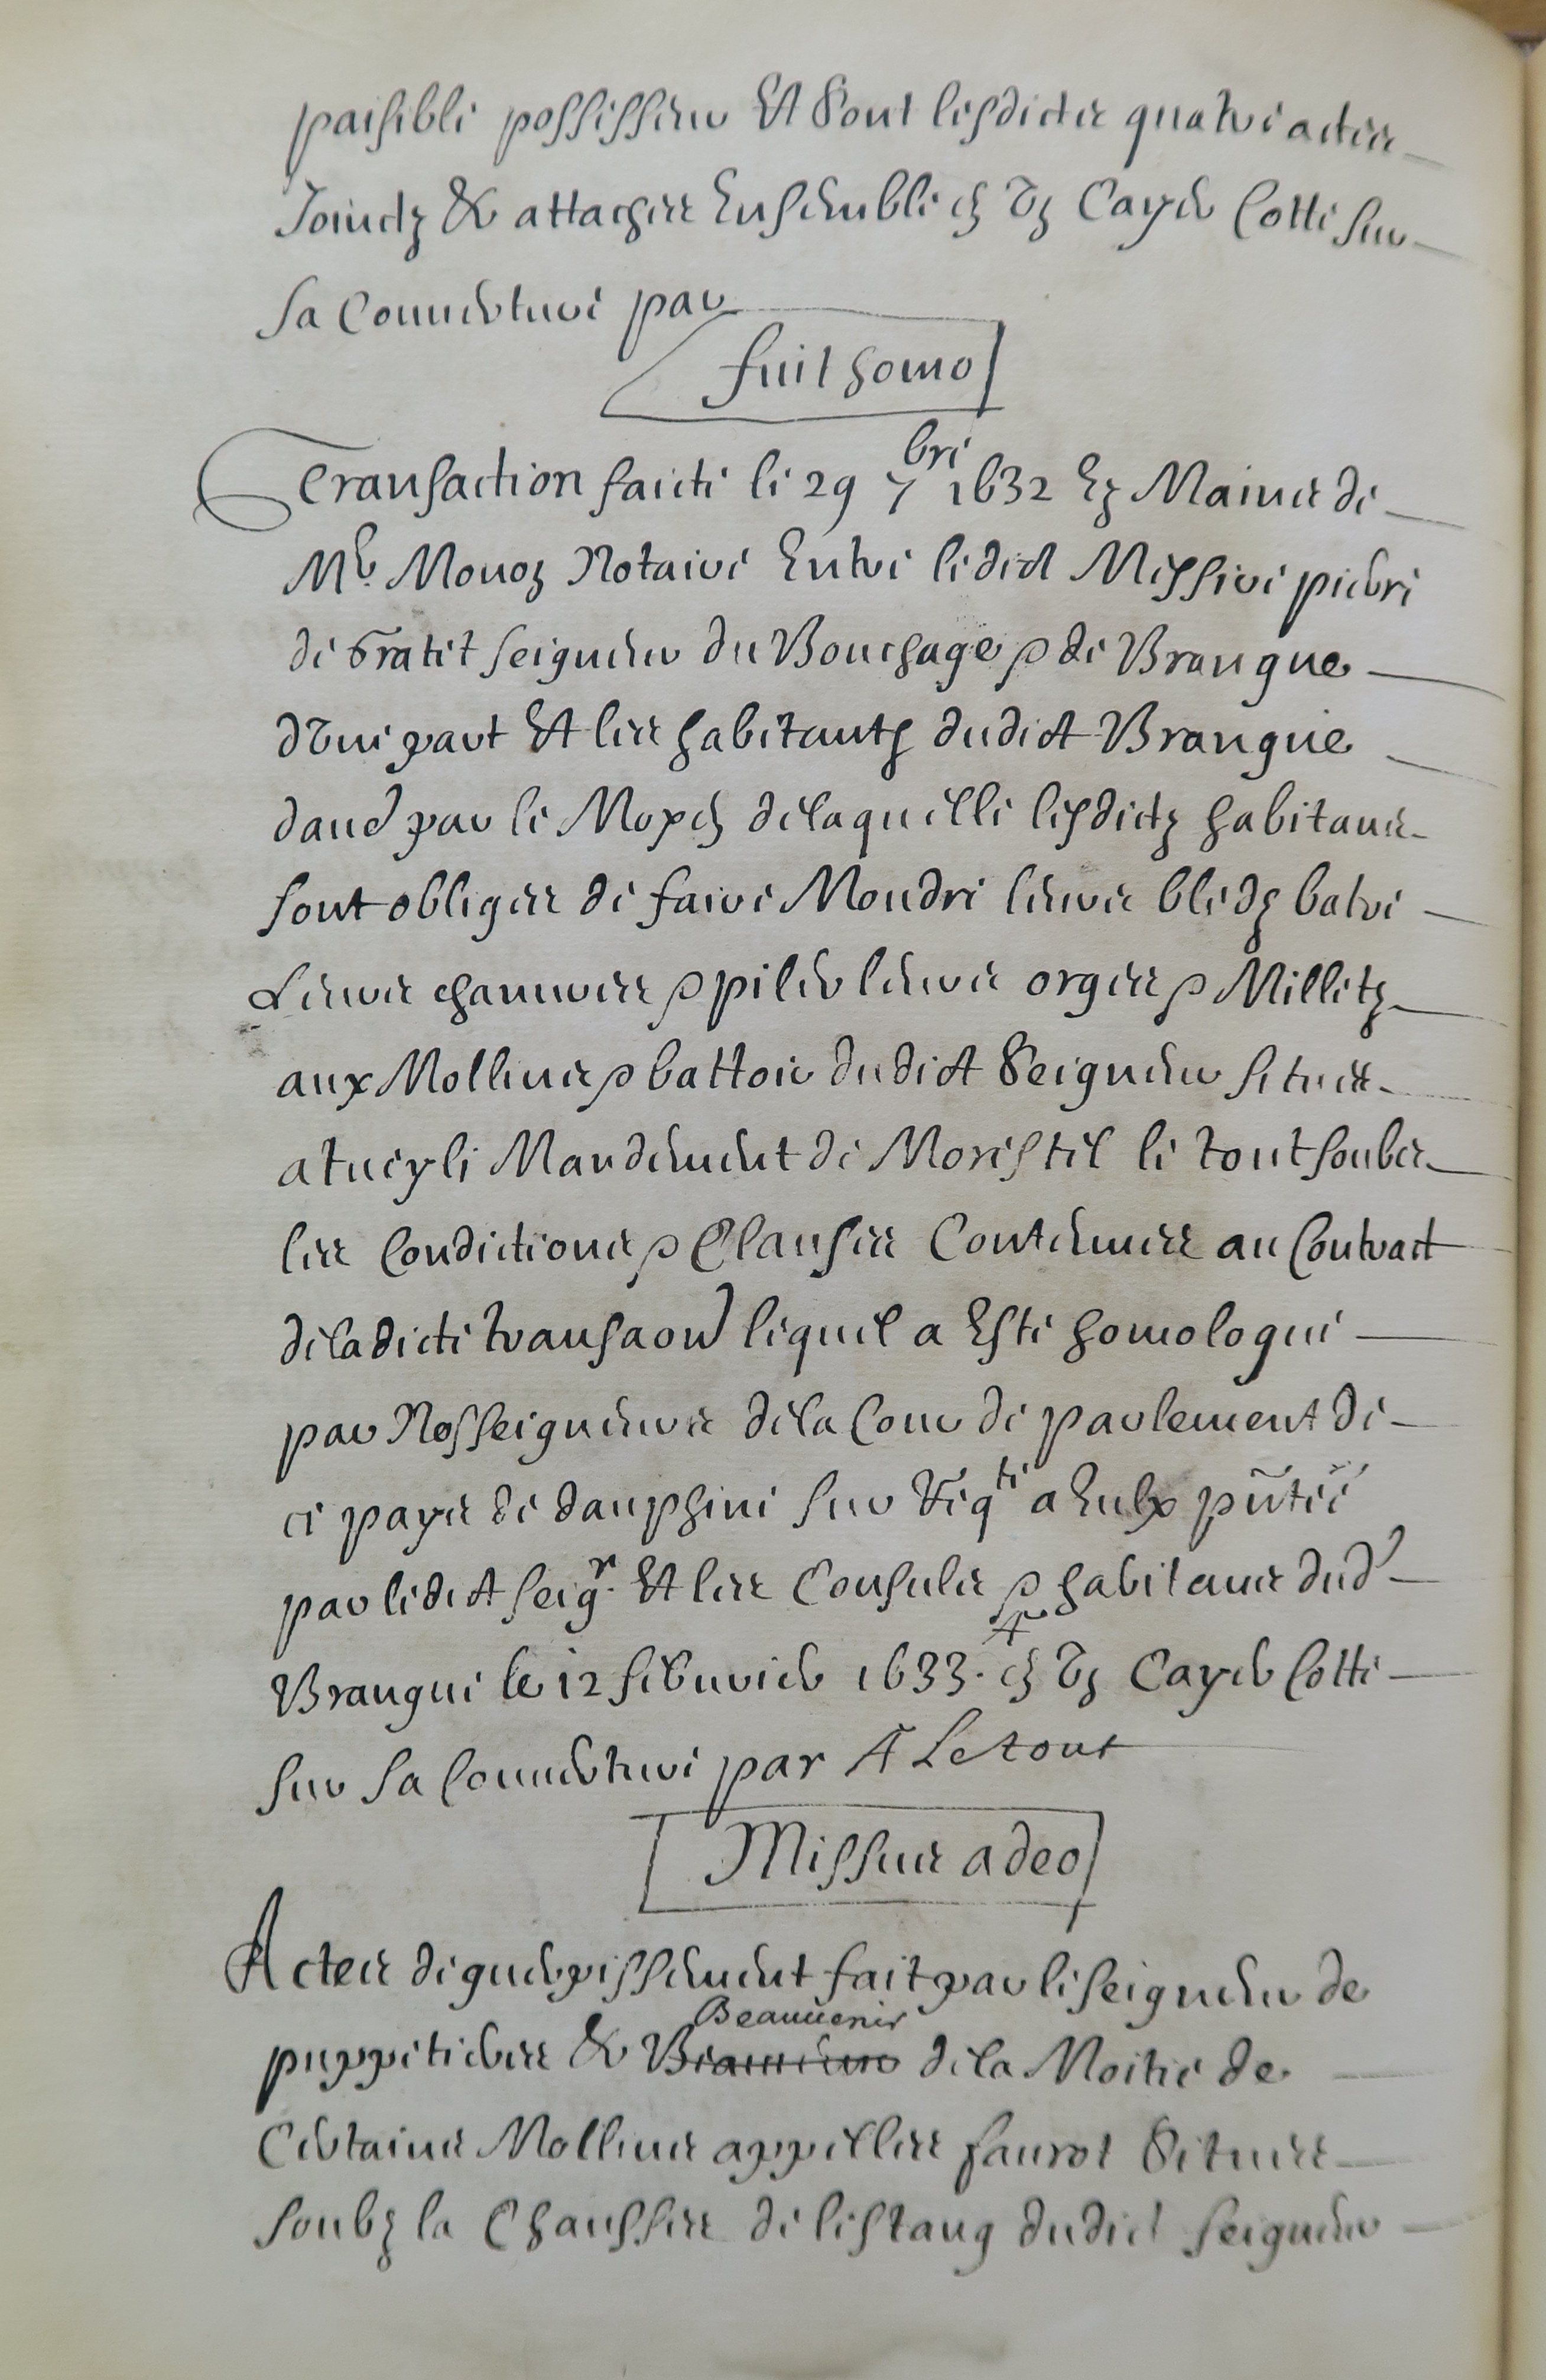 paisible possesseur Et Sont lesdictes quatre actes
Joinctz & attachees Ensemble en Un Cayer Cotte sur
sa Couuerture par
fuit homo
Transaction faicte le 29 7bre 1632 Ez Mains de
Me. Monoz Notaire Entre ledict Messire pierre
de Gratet seigneur du Bouchage & de Brangue
d'Une part Et les habitantz dudict Brangue
daud. par le Moyen delaquelle lesdictz habitans
sont obliges de faire Moudre leurs bledz batre
Leurs chanures & piler leurs orges & Milletz
aux Mollins & battoir dudict Seigneur situes
a tuey le Mandement de Morestel le tout soubs
les Conditions & Clauses Contenues au Contract
deladicte transaon lequel a Este homologue
par Nosseigneurs dela Cour de parlement de
ce pays de dauphine sur Reqte a Eulx pñtee
par ledict seigr. Et les Consuls & habitans dud.
Brangue le 12 feburier 1633. en Un Cayer Cotte
sur sa Couuerture par A Le tout
Missus a deo
Actes de guerpissement fait par le seigneur de
puppetieres & Beauuenir dela Moitie de
Certains Mollins appelles faurot Situes
soubz la Chaussee de lestang dudict seigneur